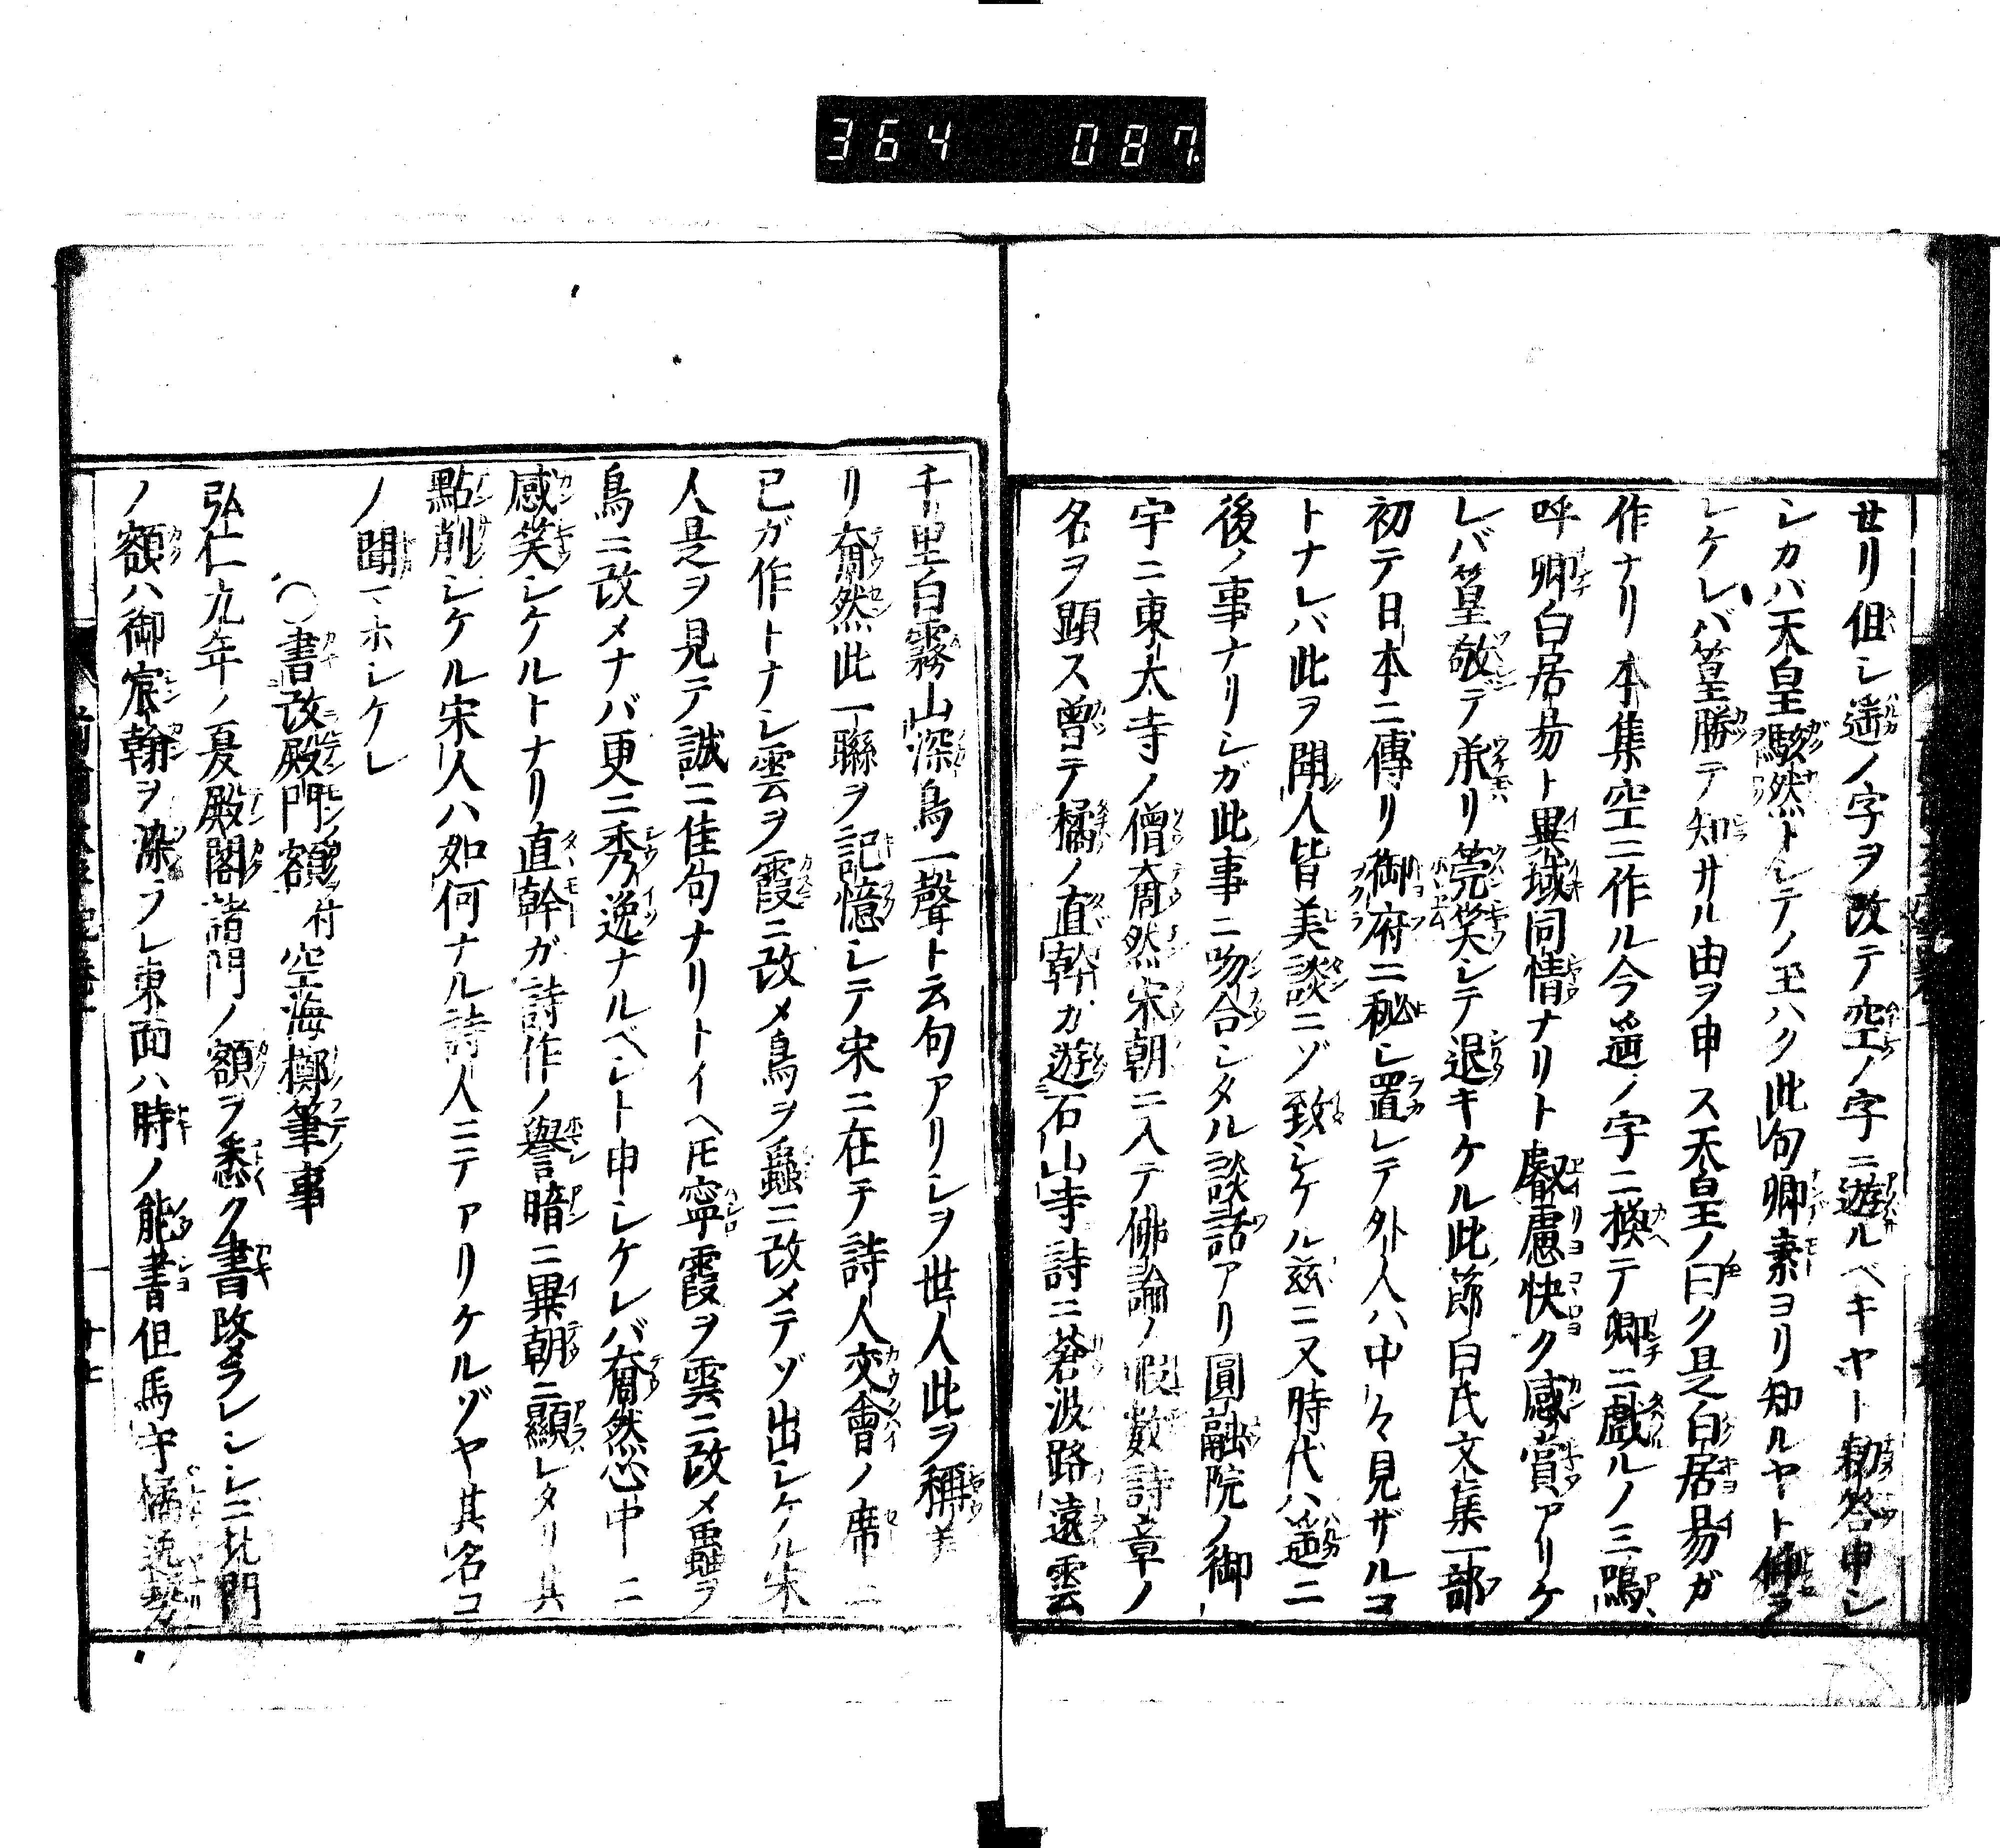 364 087
セリ但シ遥ノ字ヲ改テ空ノ字ニ遊ルベキヤト勅答申シ
シカバ天皇駭然トシテノ玉ハク此句卿素ヨリ知ルヤト仰ラ
レケレバ篁勝テ知サル由ヲ申ス天皇ノ曰ク是白居易ガ
作ナリ本集空ニ作ル今遥ノ字ニ換テ卿ニ戯ルノミ嗚
呼卿白居易ト異域同情ナリト叡慮快ク感賞アリケ
レバ篁敬テ承リ莞笑シテ退キケル此節白氏文集一部
初テ日本ニ傳リ御府ニ秘シ置レテ外人ハ中々見ザルコ
トナレバ此ヲ聞人皆美談ニゾ致シケル茲ニ又時代ハ遥ニ
後ノ事ナリシガ此事ニ吻合シタル談話アリ圓融院ノ御
宇ニ東大寺ノ僧奝然宋朝ニ入テ佛論ノ暇数詩章ノ
名ヲ顕ス曽テ橘ノ直幹ガ遊石山寺詩ニ蒼波路遠雲
千里白霧山深鳥一聲ト云句アリシヲ世人此ヲ稱美
リ奝然此一聯ヲ記憶シテ宋ニ在テ詩人交會ノ席ニ
己ガ作トナシ雲ヲ霞ニ改メ鳥ヲ蟲ニ改メテゾ出シケル宋
人是ヲ見テ誠ニ佳句ナリトイヘ𪜈寧霞ヲ雲ニ改メ蟲ヲ
鳥ニ改メナバ更ニ秀逸ナルベシト申シケレバ奝然心中ニ
感笑シケルトナリ直幹ガ詩作ノ譽暗ニ異朝ニ顯レタリ其
點削シケル宋人ハ如何ナル詩人ニテアリケルゾヤ其名コ
ノ聞マホシケレ
〇書改殿門額付空海擲筆事
弘仁九年ノ夏殿閣諸門ノ額ヲ悉ク書改ラレシニ北門
ノ額ハ御宸翰ヲ染ラレ東面ハ時ノ能書但馬守橘逸勢
十七